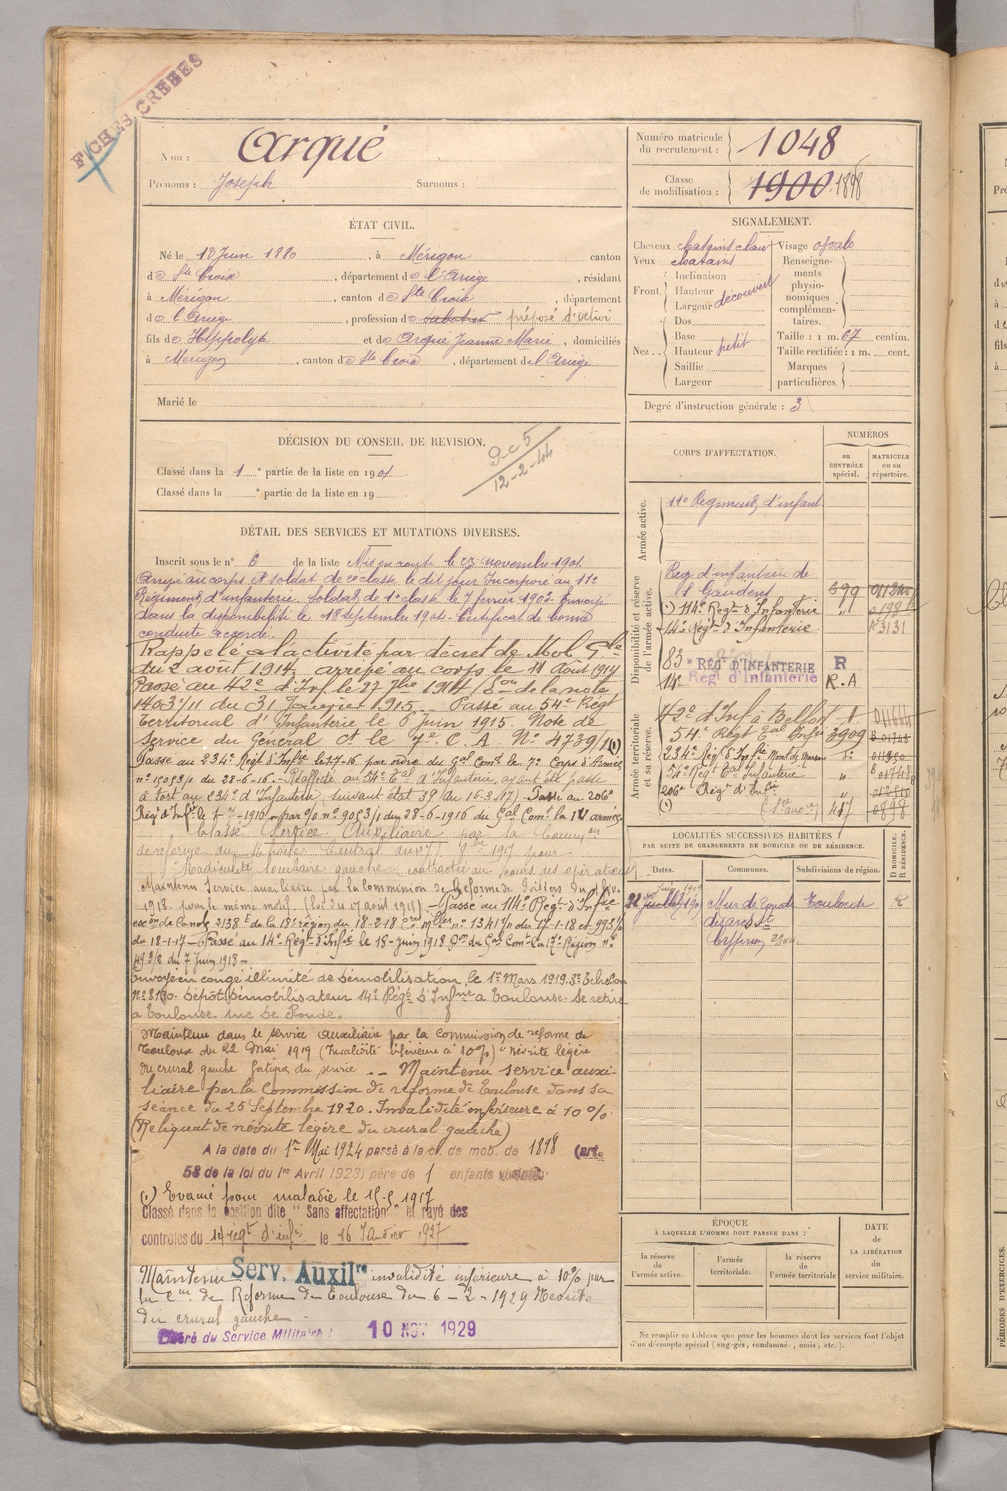 FICHES CRÉÉES
Nom : Arqué
Prénoms : Joseph Surnoms :
Numéro matricule du recrutement : 1048
Classe de mobilisation : 1900 1898
ÉTAT CIVIL.
Né le 12 Juin 1880, à Mérigon canton
de Ste Croix, département de l'Ariège, résidant
à Mérigon, canton de Ste Croix, département
de l'Ariège, profession de sabotier préposé d'octroi
fils de Hippolyte et de Arqué Jeanne Marie, domiciliés
à Mérigon, canton de Ste Croix, département de l'Ariège
Marié le
SIGNALEMENT.
Cheveux châtains clair Visage ovale
Yeux châtains
Front Inclinaison
Hauteur
Largeur découvert
Nez Dos
Base
Hauteur petit
Saillie
Largeur
Renseignements physionomiques complémentaires.
Taille : 1 m. 67 centim.
Taille rectifiée : 1 m. cent.
Marques particulières.
Degré d'instruction générale : 3
DÉCISION DU CONSEIL DE REVISION.
Classé dans la 1e partie de la liste en 1901
Classé dans la e partie de la liste en 19
12-2-44
DÉTAIL DES SERVICES ET MUTATIONS DIVERSES.
Inscrit sous le n° 6 de la liste Mis en route le novembre 1901
Arrivé au corps et soldat de 2e classe le dit jour Incorporé au 11e
Régiment d'infanterie. Soldat de 1e classe le 7 février 1903. Envoyé
dans la disponibilité le 18 septembre 1904. Certificat de bonne
conduite accordé.
Rappelé à l'activité par décret de Mob. Gle
du 2 août 1914, arrivé au corps le 11 Août 1914
Passé au 42e d'Inf. le 27 7bre 1914 de la note
1403/11 du 31 Janvier 1915. Passé au 54e Régt
Territorial d'Infanterie le 6 Juin 1915. Note de
service du Général Ct le 7e C.A. N° 4739/1
Passé au 234e Régt d'Infie le 1-7-16 par ordre du Gal Comt le 7e Corps d'Armée
n° 15093/1 du 28-6-16. Réaffecté au 54e Tal d'Infanterie, ayant été passé
à tort au 234e d'Infanterie, suivant état 39 du 16-3-17. Passé au 206e
Régt d'Inf. le 1-7-1916 par o/ n° 9053/1 du 28-6-1916 du Gal Comt la IV armée
Classé Service Auxiliaire par la Common
de réforme du Central du 1917 pour
"Radiculite lombaire gauche" contractée au cours des opérations
Maintenu Service auxiliaire par la Commission de Réforme de Poitiers du
1918 pour le même motif. (Loi du 17 août 1915) Passé au 114e Régt d'Infie
exon de la note 2138 E de la 18e région du 18-2-18 n° 1341/0 du 17-1-18 et 993/0
du 18-1-17 Passé au 14e Régt d'Infie le 15 Juin 1918 du Gal Comt la 17e Région n°
du 7 Juin 1918
Envoyé en congé illimité de démobilisation le 1er Mars 1919. 3e Echelon
N° 8180. Dépôt Démobilisateur 14e Régt d'Infie à Toulouse. Se retire
à Toulouse rue de Ronde.
Maintenu dans le service auxiliaire par la commission de réforme de
Toulouse du 22 Mai 1919 (Invalidité inférieure à 10%) névrite légère
du crural gauche fatigue du service. Maintenu service auxi-
liaire par la Commission de réforme de Toulouse dans sa
séance du 25 Septembre 1920. Invalidité inférieure à 10 %
(Reliquat de névrite légère du crural gauche)
A la date du 1er Mai 1924 passé à la cl. de mob. de 1898 (art.
58 de la loi du 1er Avril 1923) père de 1 enfants vivants.
(.) Evacué pour maladie le 15-5 1917
Classé dans la position dite "Sans affectation" et rayé des
contrôles du 14 régt d'infie le 16 Janvier 1927
Maintenu Serv. Auxilre invalidité inférieure à 10% par
la Con de Réforme de Toulouse du 6-2-1929 Névrite
du crural gauche
Libéré du Service Militaire ! 10 NOV 1929
CORPS D'AFFECTATION.
NUMÉROS
au CONTRÔLE spécial.
MATRICULE ou au répertoire.
Armée active.
11e Régiment d'infant.
Disponibilité et réserve de l'armée active.
Reg d'infanterie de
St Gaudens 699
(.) 114e Régt d'Infanterie "
14e Régt d'Infanterie 3131
83e RÉGt D'INFANTERIE R
14e Régt d'Infanterie R.A
Armée territoriale et sa réserve.
42e d'Inf à Belfort
54e Régt Tal Infie 3909
234e Régt d'Infie Mont de Marsan
54e Régt Tal Infanterie "
206e Régt d'Infie "
(.) 417
LOCALITÉS SUCCESSIVES HABITÉES
PAR SUITE DE CHANGEMENTS DE DOMICILE OU DE RÉSIDENCE.
Dates. Communes. Subdivisions de région. D DOMICILE. R RÉSIDENCE.
Toulouse R
ÉPOQUE
À LAQUELLE L'HOMME DOIT PASSER DANS :
la réserve de l'armée active.
l'armée territoriale.
la réserve de l'armée territoriale
DATE de LA LIBÉRATION du service militaire.
Ne remplir ce tableau que pour les hommes dont les services font l'objet
d'un décompte spécial (engagés, condamnés, omis, etc.).
PÉRIODES D'EXERCICES.